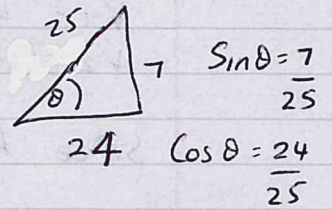 25
7
θ
24
Sinθ = 7/25
Cosθ = 24/25